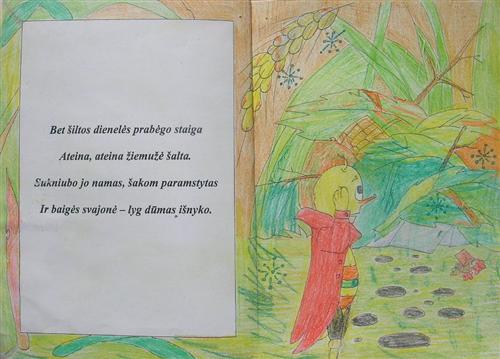 Bet šiltos dienelės prabėgo staiga
Ateina, ateina žiemužė šalta.
Sukniubo jo namas, šakom paramstytas
Ir baigės svajonė – lyg dūmas išnyko.